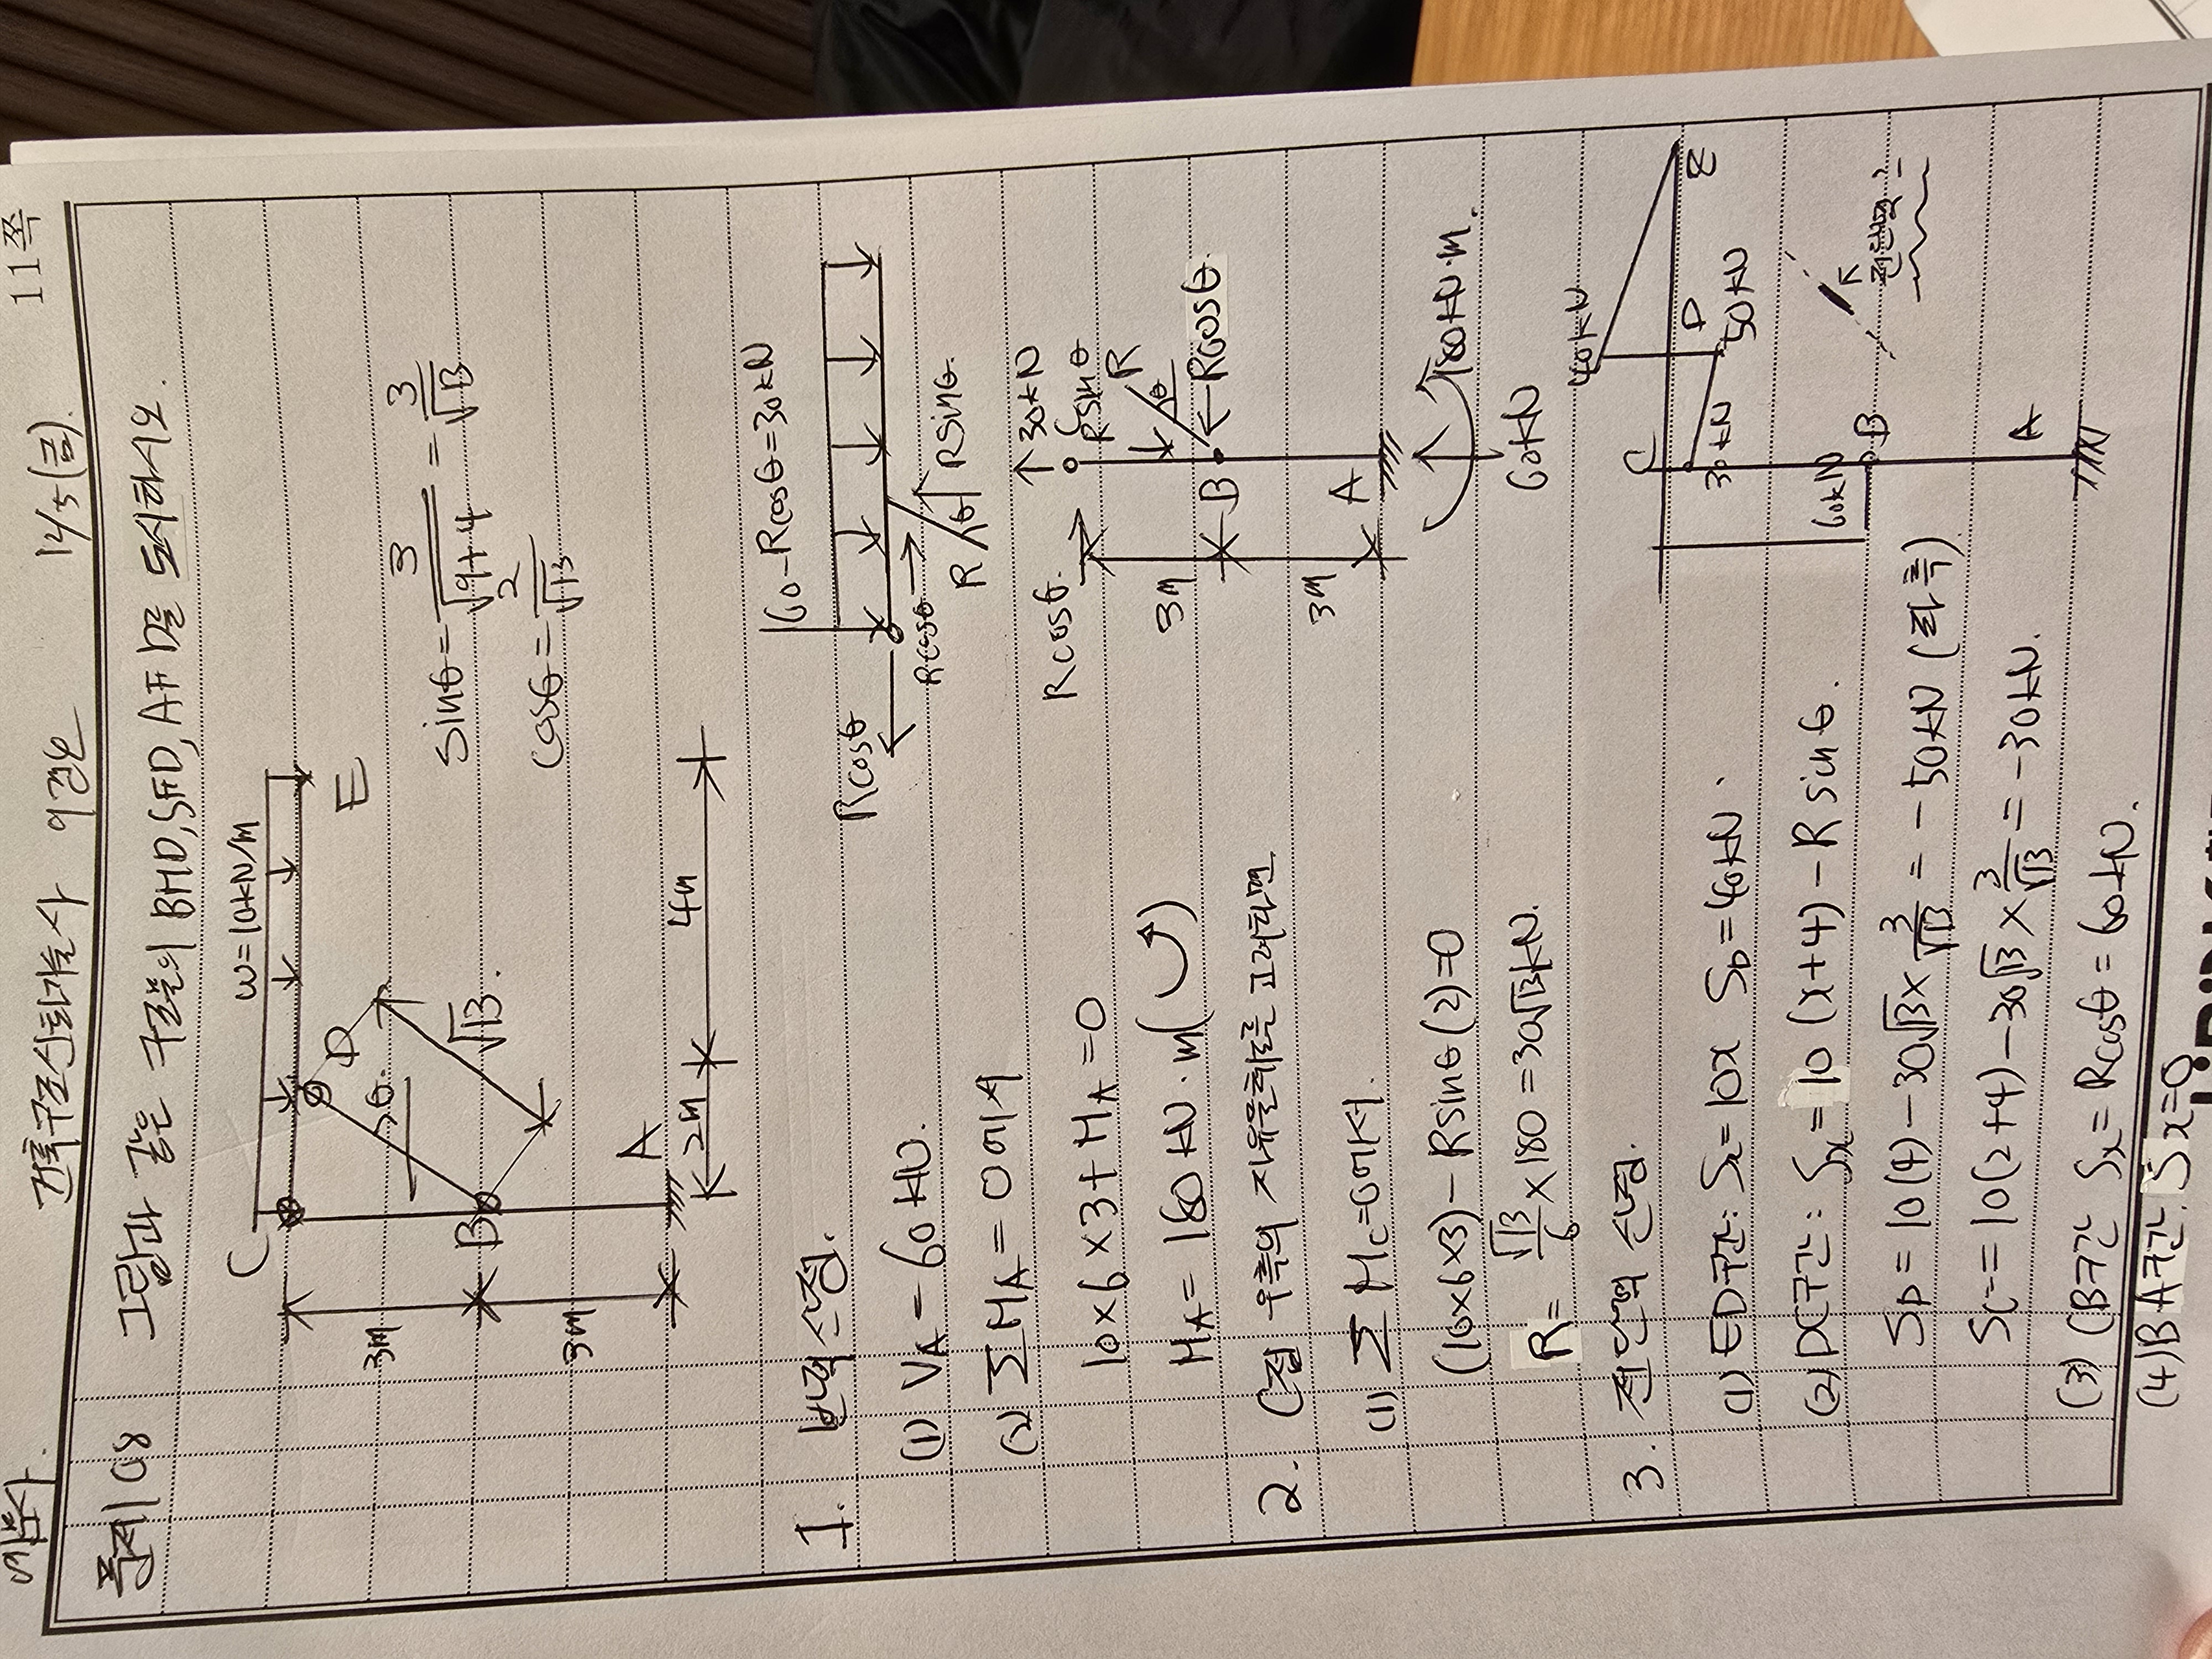 건축구조신화기술사
12/5(금).
11쪽
문제 108 그림과 같은 구조물의 BMD, SFD, AFD를 도시하시오.
w=10kN/m
C
D
E
B
A
θ
√13.
3m
3m
2m
4m
sinθ = 3/√(9+4) = 3/√13
cosθ = 2/√13
1. 반력산정.
(1) VA = 60kN.
(2) ΣMA = 0에서
10×6×3+MA=0
MA=180kN·m(↺)
60-Rcosθ=30kN
Rcosθ
Rcosθ →
R
θ
Rsinθ.
2. C점 우측의 자유물체도를 고려하면
(1) ΣMC=0에서.
(10×6×3)-Rsinθ(2)=0
R= √13/6 ×180=30√13kN.
Rcosθ.
↑30kN
C
Rsinθ
R
θ
←Rcosθ.
3m
B
3m
A
180kN·m.
60kN
3. 전단력 산정.
(1) ED구간: Sx=10x SD=40kN.
(2) DC구간: Sx=10(x+4)-Rsinθ.
SD=10(4)-30√13× 3/√13 = -50kN (좌측)
SC=10(2+4)-30√13× 3/√13 = -30kN.
(3) CB구간 Sx=Rcosθ=60kN.
(4) BA구간: Sx=0
40kN
C
D
E
30kN
50kN
60kN
B
A